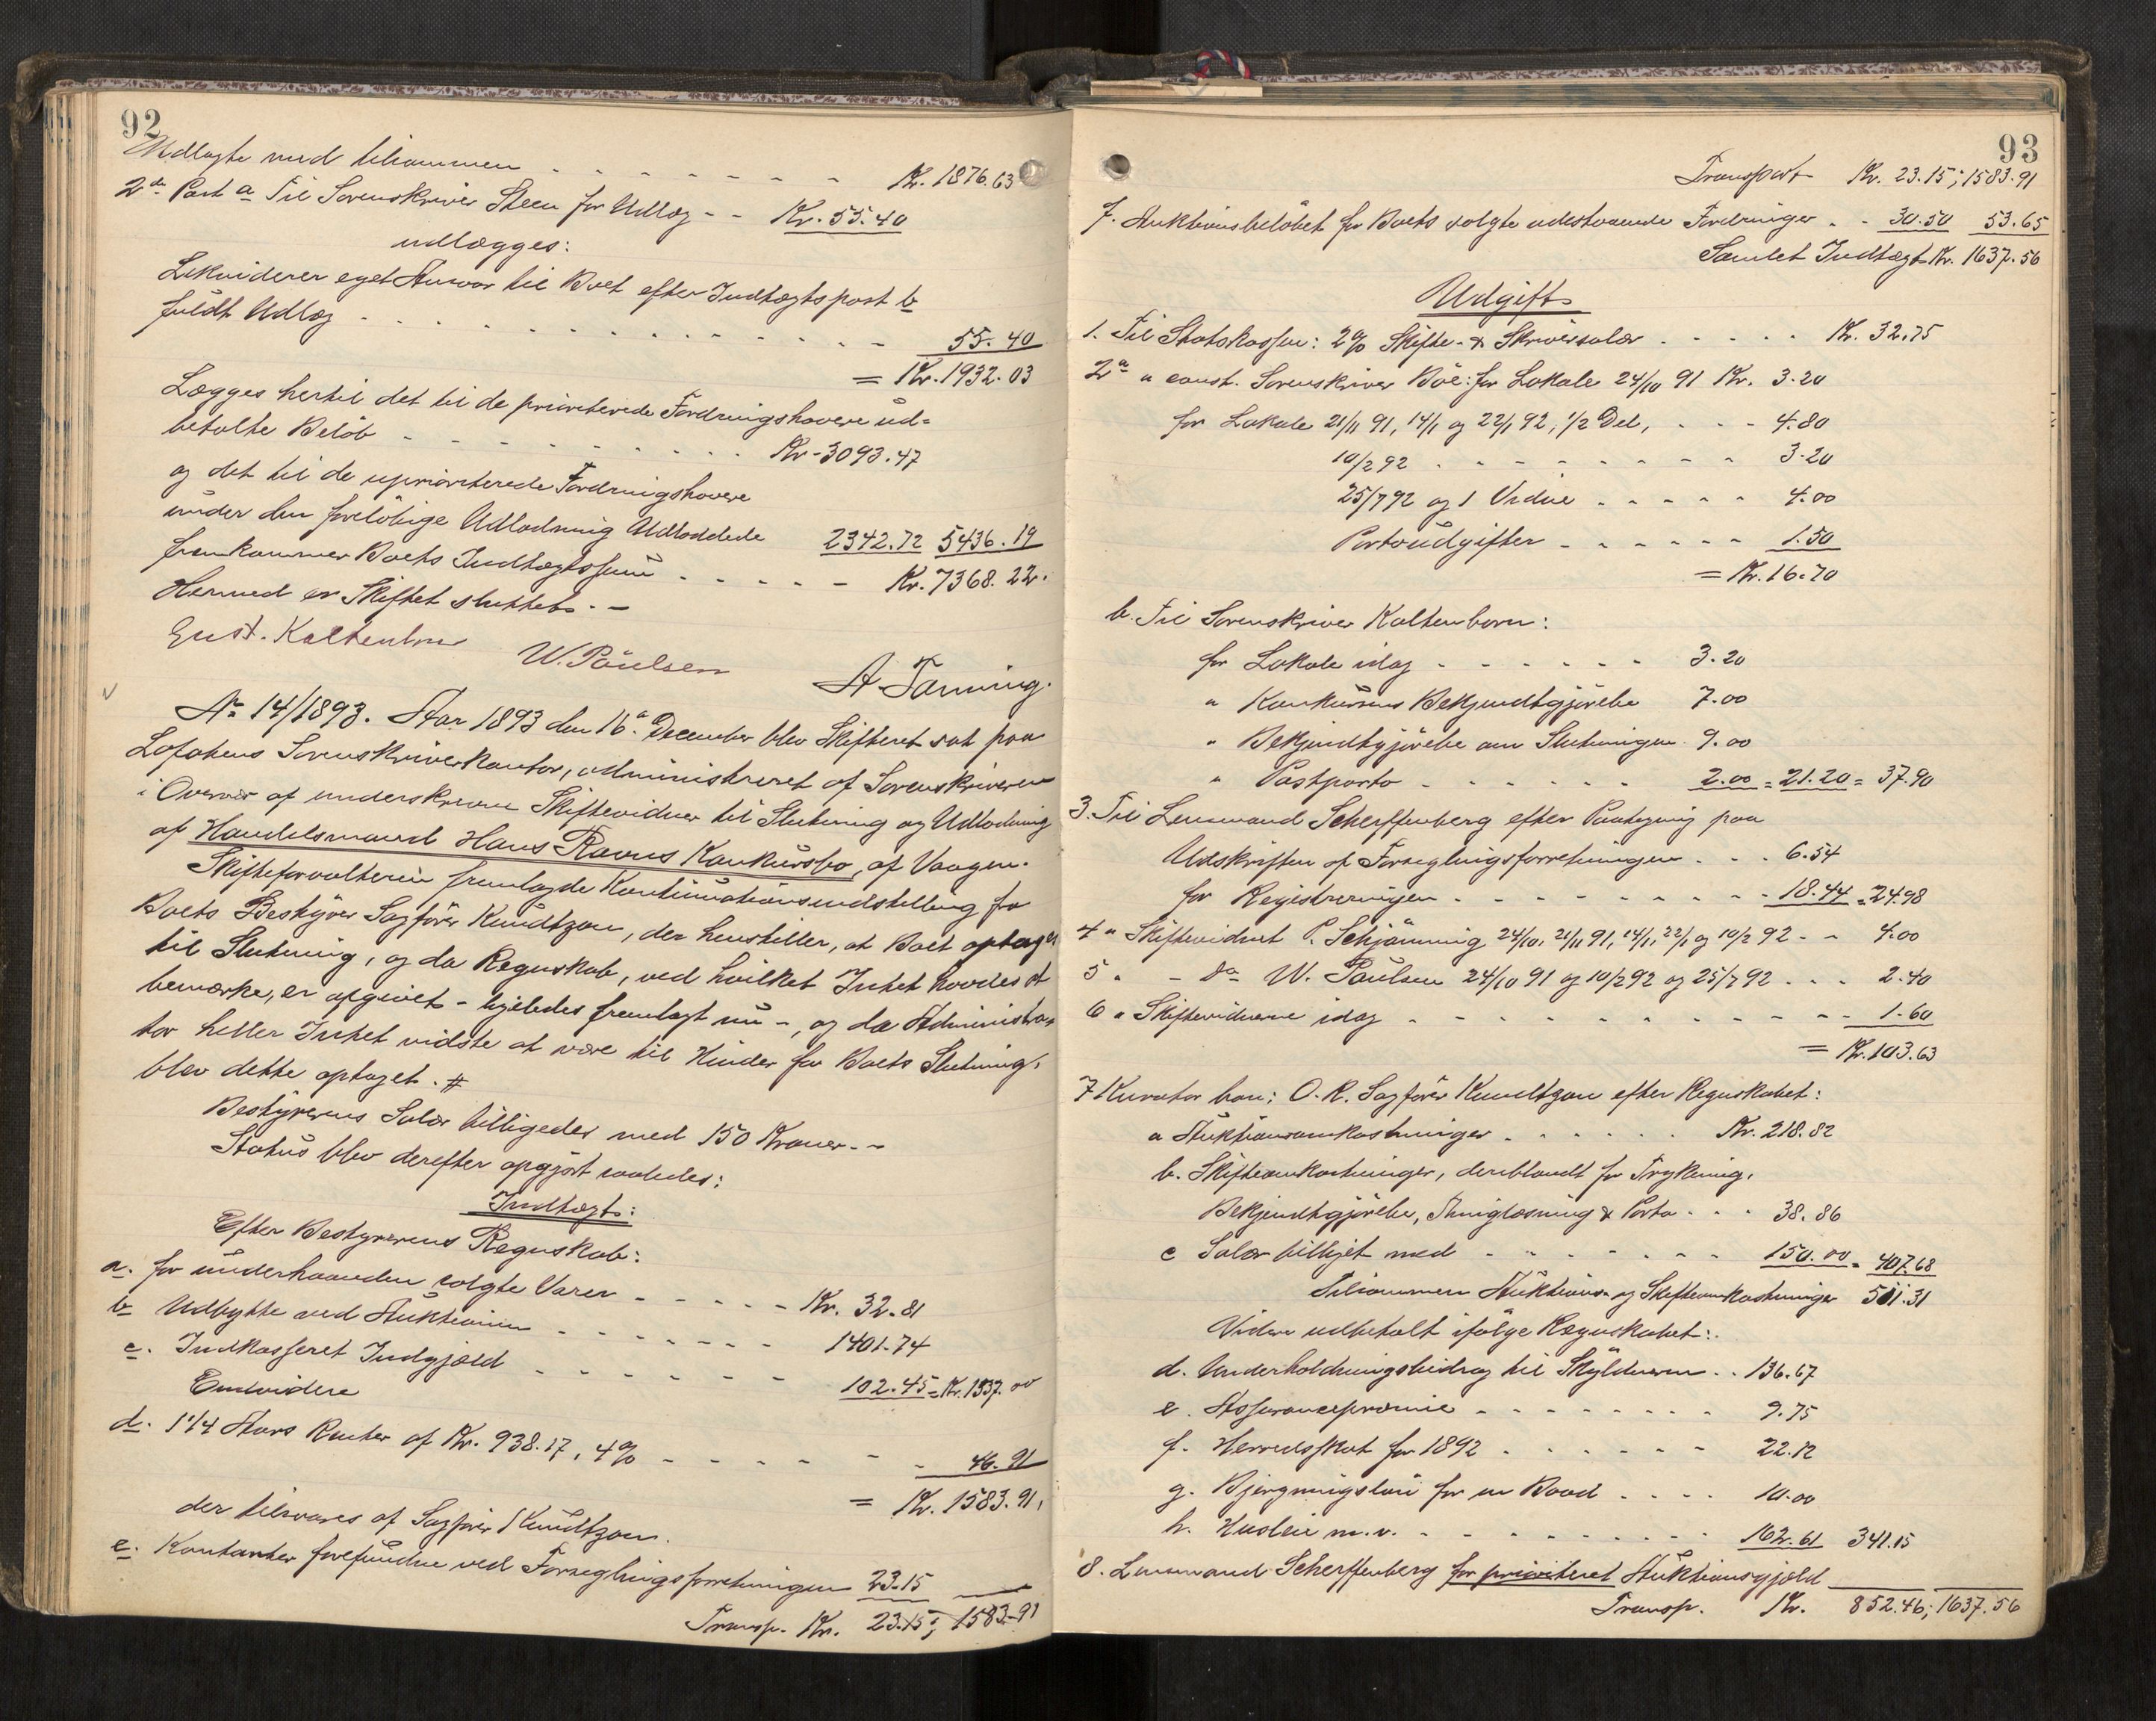 92
Udlagte med tilsammen - - - - - - - Kr. 1876.63
2de Post a Til Sorenskriver Steen for Udlæg - - Kr. 55.40
udlægges:
Likviderer eget Ansvar til Boet efter Indtægtspost b
fuldt Udlæg - - - - - - - - - - 55.40
= Kr. 1932.03
Lægges hertil det til de prioriterede Fordringshavere ud-
betalte Beløb - - - - - - - Kr. 3093.47
og det til de uprioriterede Fordringshavere
under den foreløbige Udlodning Udloddede 2342.72 5436.19
fremkommer Boets Indtægtssum - - - - - Kr. 7368.22.
Hermed er Skiftet sluttet. -
Gust. Kaltenborn W. Paulsen A. Tønning.
No 14/1893. Aar 1893 den 16de December blev Skifteret sat paa
Lofotens Sorenskriverkontor, administreret af Sorenskriveren
i Overvær af underskrevne Skiftevidner til Slutning og Udlodning
af Handelsmand Hans Ravns Konkursbo, af Vaagen.
Skifteforvalteren fremlagde Kontinuationsindstilling fra
Boets Bestyrer Sagfører Knudtzon, der henstiller, at Boet optages
til Slutning, og da Regnskab, ved hvilket Intet havdes at
bemærke, er afgivet - ligeledes fremlagt nu -, og da Administra-
tor heller Intet vidste at være til Hinder for Boets Slutning,
blev dette optaget. #
Bestyrerens Salær billigedes med 150 Kroner. -
Status blev derefter opgjort saaledes:
Indtægt:
Efter Bestyrerens Regnskab:
a. for underhaanden solgte Varer - - - - - Kr. 32.81
b Udbytte ved Auktionen - - - - - - - 1401.74
c. Indkasseret Indgjæld - - - - - - - 102.45 = Kr. 1537.00
Endvidere
d. 1 1/4 Aars Renter af Kr. 938.17, 4% - - - - - - 46.91
= Kr. 1583.91,
der tilsvares af Sagfører Knudtzon.
e. Kontanter forefundne ved Forseglingsforretningen 23.15
Transp. Kr. 23.15; 1583.91
93
Transport Kr. 23.15; 1583.91
f. Auktionsbeløbet for Boets solgte udestaaende Fordringer - - 30.50 53.65
Samlet Indtægt Kr. 1637.56
Udgift
1. Til Statskassen: 2% Skifte- & Skriversalær - - - - - Kr. 32.75
2a " const. Sorenskriver Böe: for Lokale 24/10 91 Kr. 3.20
for Lokale 21/11 91, 14/1 og 22/1 92, 1/2 Del, - - - 4.80
10/2 92 - - - - - - - - - 3.20
25/7 92 og 1 Vidne - - - - - 4.00
Portoudgifter - - - - - - 1.50
= Kr. 16.70
b. Til Sorenskriver Kaltenborn:
for Lokale idag - - - - - - 3.20
" Konkursens Bekjendtgjørelse 7.00
" Bekjendtgjørelse om Slutningen 9.00
" Postporto - - - - - - 2.00 = 21.20 = 37.90
3. Til Lensmand Scherffenberg efter Paategning paa
Udskriften af Forseglingsforretningen - - - 6.54
for Registreringen - - - - - - - - - 18.44 = 24.98
4 " Skiftevidnet P. Schjønning 24/10, 21/11 91, 14/1, 22/1 og 10/2 92 - - 4.00
5 " - do W. Paulsen 24/10 91 og 10/2 92 og 25/7 92 - - - 2.40
6 " Skiftevidnerne idag - - - - - - - - - - - - 1.60
= Kr. 103.63
7 Kurator bon: O.R. Sagfører Knudtzon efter Regnskabet:
a Auktionsomkostninger - - - - - - Kr. 218.82
b. Skifteomkostninger, deriblandt for Trykning,
Bekjendtgjørelse, Thinglæsning & Porto - - - 38.86
c Salær billiget med - - - - - - - 150.00 = 407.68
Tilsammen Auktions- og Skifteomkostninger 511.31
Videre udbetalt ifølge Regnskabet:
d. Underholdningsbidrag til Skyldneren - - 136.67
e. Assurancepræmie - - - - - - - - 9.75
f. Herredsskat for 1892 - - - - - - 22.12
g. Bjergningsløn for en Baad - - - - 10.00
h. Husleie m.v. - - - - - - - - - 162.61 341.15
8. Lensmand Scherffenberg for prioriteret Auktionsgjæld
Transp. Kr. 852.46; 1637.56